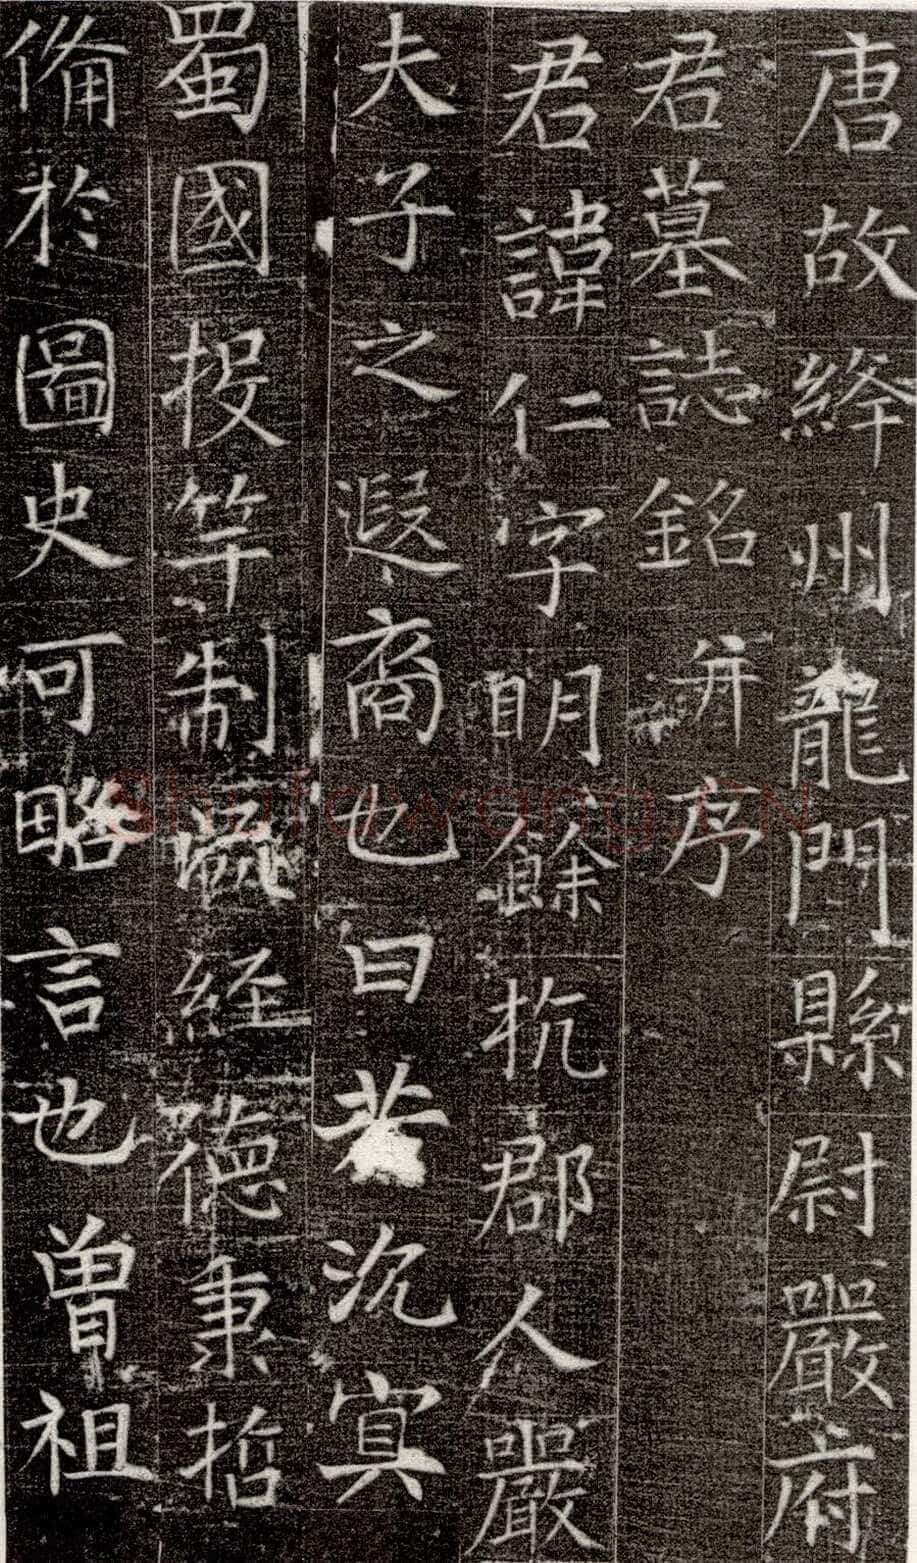 唐故絳州龍門縣尉嚴府
君墓誌銘并序
君諱仁字明餘杭郡人嚴
夫子之遐裔也曰若沉冥
蜀國投竿制經德秉哲
備於圖史可略言也曾祖
Shufawang.CN